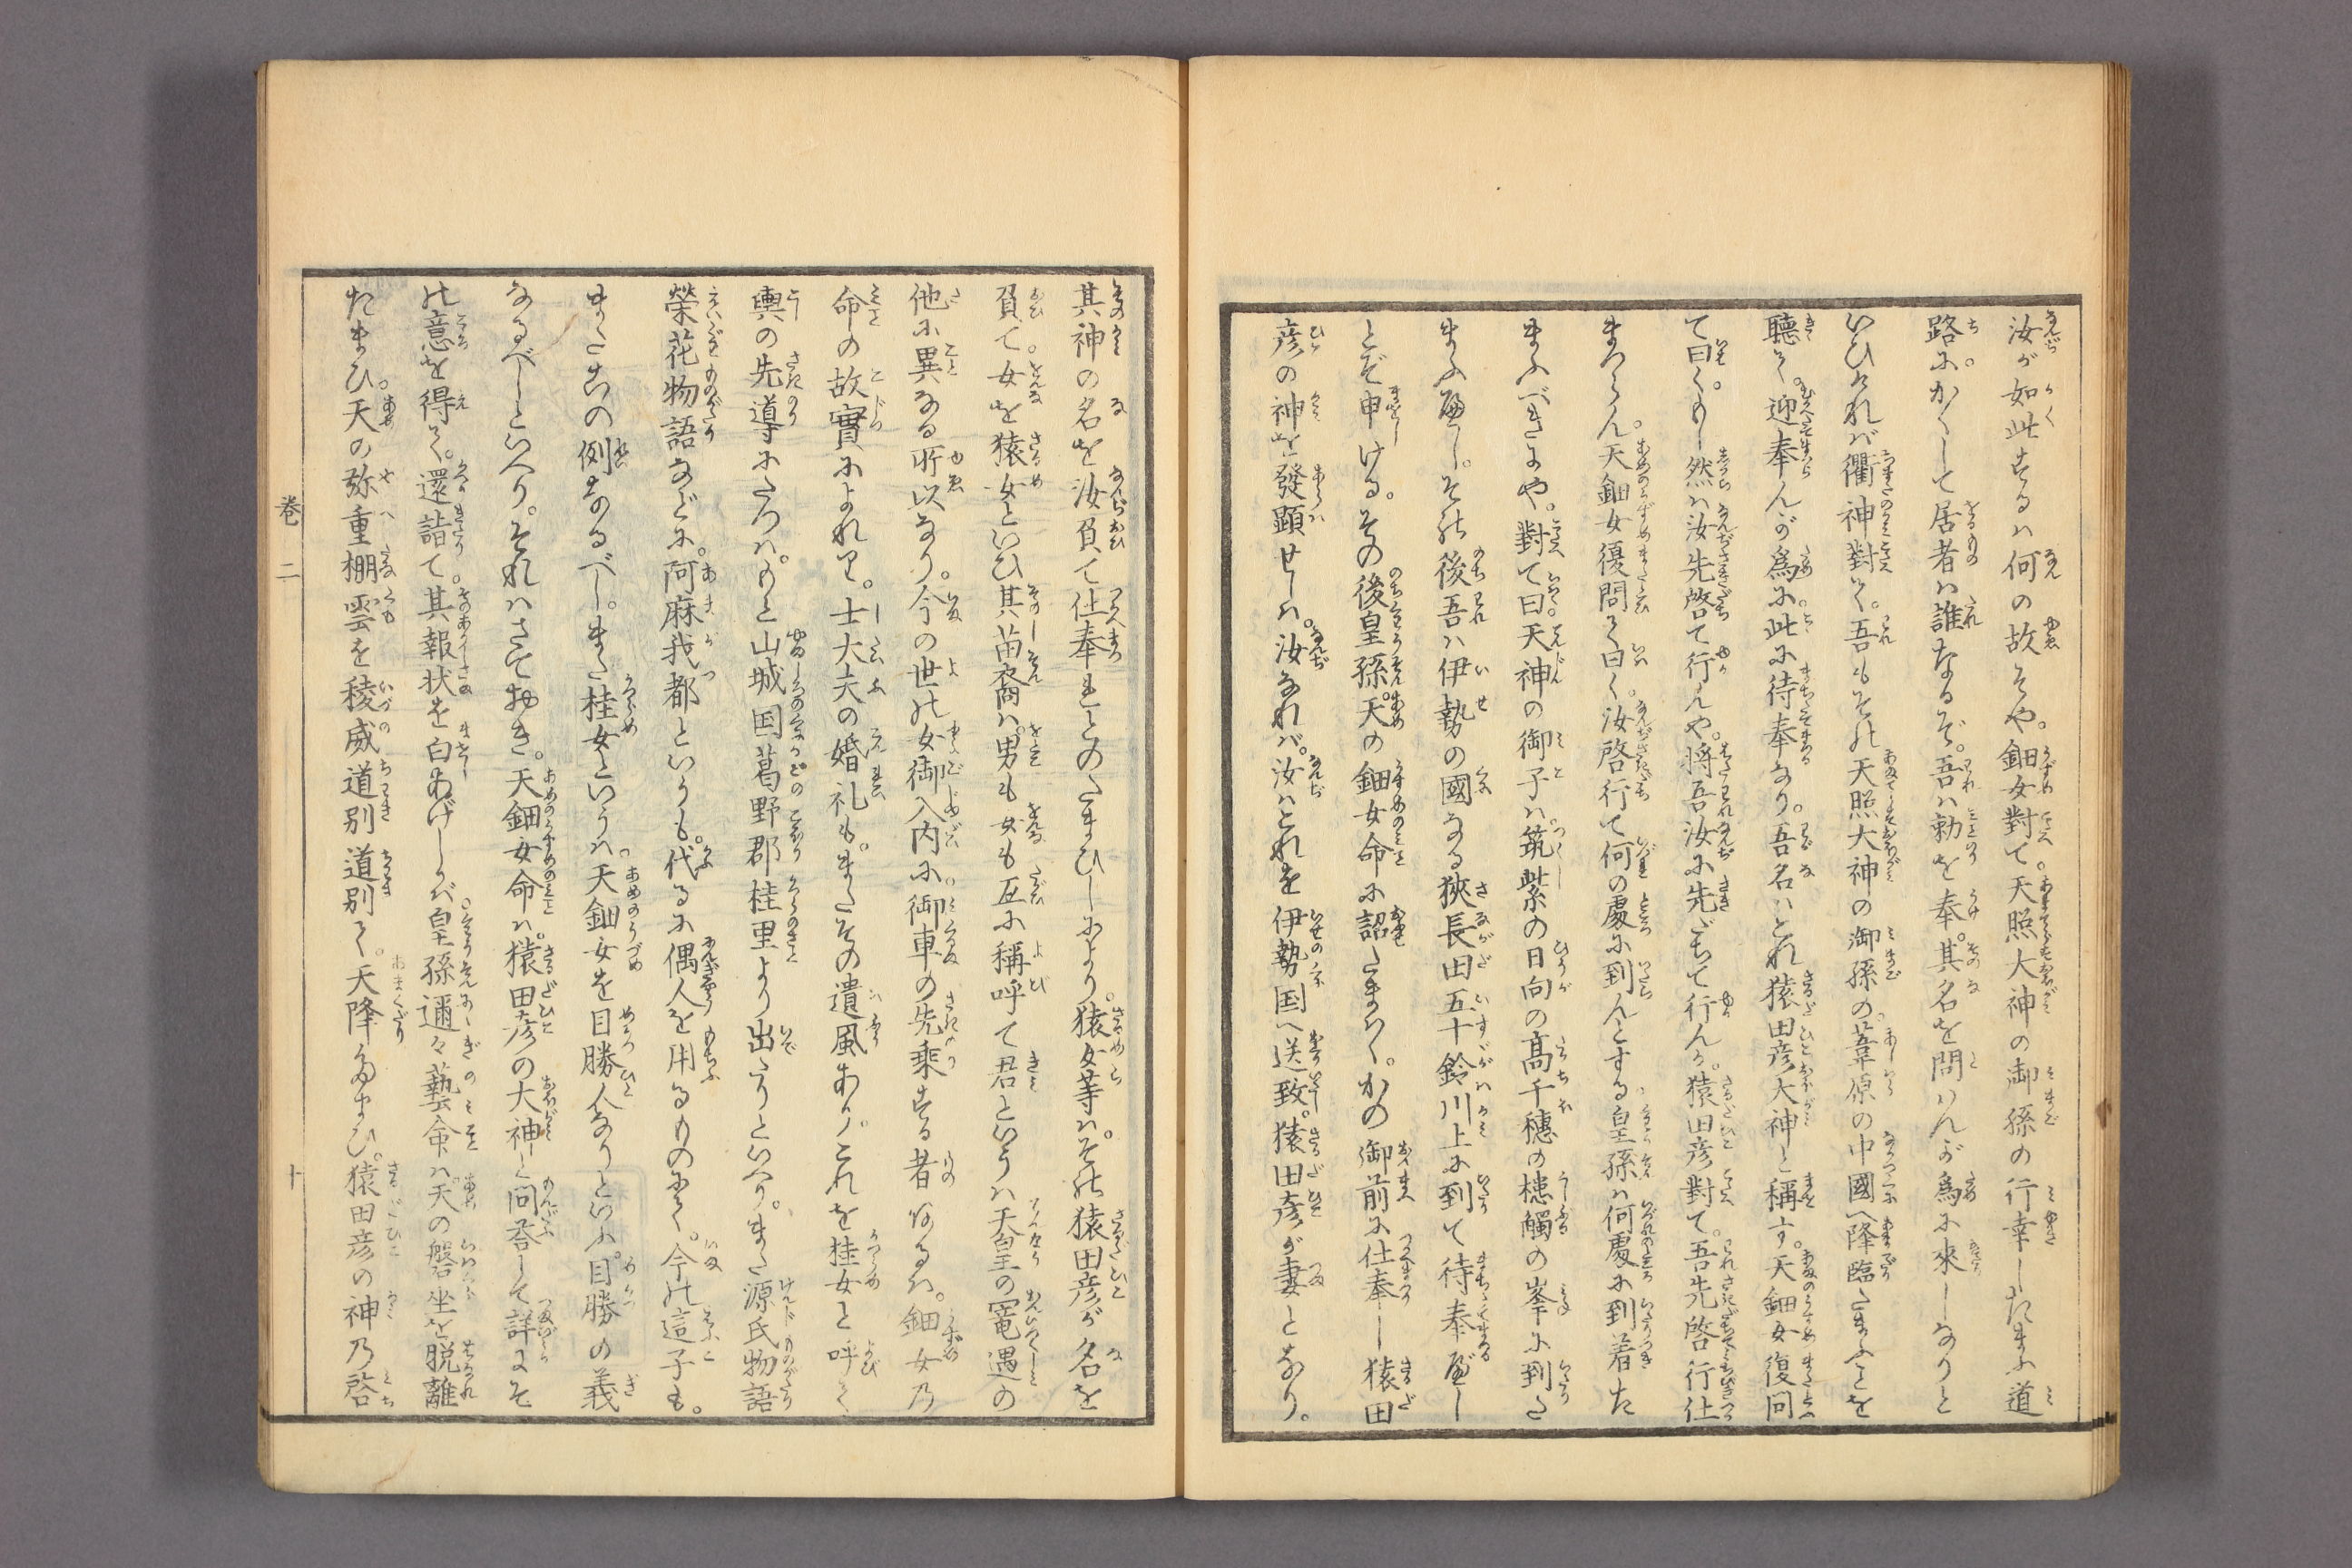 汝が如此するは何の故そや。鈿女對て。天照大神の御孫の行幸したまふ道
路に。かくして居者は誰なるぞ。吾は勅を奉。其名を問はんが為に來しなりと
いひければ衢神對て。吾もその天照大神の御孫の。葦原の中國へ降臨たまふことを
聽て。迎奉んが為に。此に待奉なり。吾名はこれ猿田彦大神と稱す。天鈿女復問
て曰く。もし然は汝先啓て行んや。将吾汝に先だちて行んか。猿田彦對て。吾先啓行仕
まつらん。天鈿女復問て曰く。汝啓行て何の處に到んとする。皇孫は何處に到着た
まふべきにや。對て曰。天神の御子は。筑紫の日向の高千穗の槵觸の峯に到た
まふ應し。その後吾は伊勢の國なる狹長田五十鈴川上に到て待奉べし
とぞ申ける。その後皇孫。天の鈿女命に詔たまはく。かの御前に仕奉し猿田
彦の神を發顕せしは。汝なれば。汝はこれを伊勢国へ送致。猿田彦が妻となり。
其神の名を汝負て仕奉れとのたまひしにより。猿女等は。その猿田彦が名を
負て。女を猿女といひ其苗裔は。男も女も互に稱呼て君といふは天皇の寵遇の
他に異なる所以なり。今の世の女御入内に。御車の先乗する者あるは。鈿女乃
命の故實によれり。士大夫の婚礼も。またその遺風あり。これを桂女と呼て
輿の先導にたつは。もと山城国葛野郡桂里より出たりといへり。また源氏物語
榮花物語などに。阿麻我都といふも。代るに偶人を用るものにて。今の這子も。
またこの例なるべし。また桂女といふは。天鈿女を目勝人なりといふ。目勝の義
なるべしといへり。それはさておき。天鈿女命は。猿田彦の大神と問荅して詳にそ
の意を得て。還詣て。其報状を白あげしかば皇孫邇々藝命は。天の磐坐を脱離
たまひ。天の弥重棚雲を稜威道別道別て。天降たまひ。猿田彦の神乃啓
巻二
十